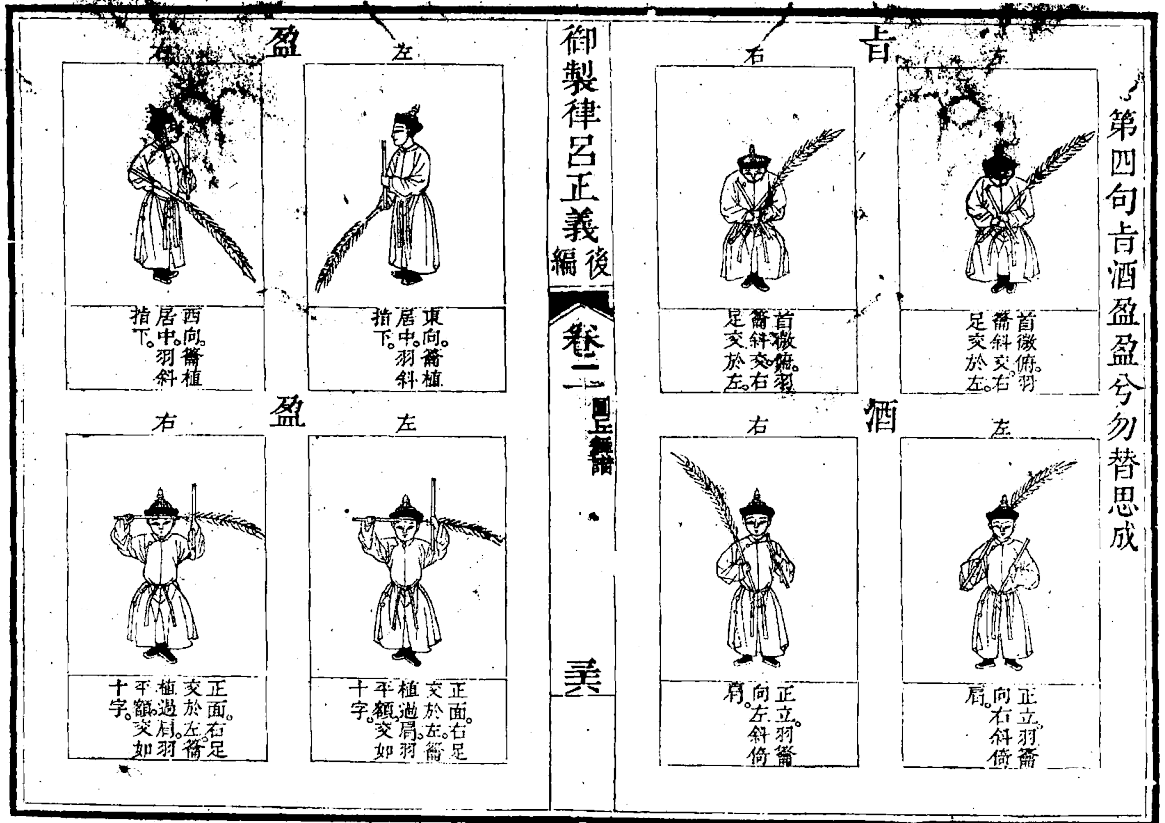 第四句㫖酒盈盈兮勿替思成
㫖
左
首微俯。羽
籥斜交。右
足交於左。
右
首微俯。羽
籥斜交。右
足交於左。
酒
左
正立。羽籥
向右斜倚
肩。
右
正立。羽籥
向左斜倚
肩。
御製律呂正義後編
卷二
圜丘舞譜
三六
盈
左
東向。籥植
居中。羽斜
指下。
右
西向。籥植
居中。羽斜
指下。
盈
左
正面。右足
交於左。籥
植過肩。羽
平額。交如
十字。
右
正面。右足
交於左。籥
植過肩。羽
平額。交如
十字。